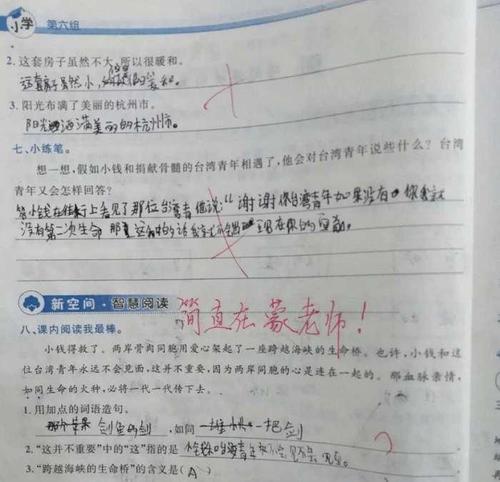 小学 第六组
2. 这套房子虽然不大,所以很暖和。
这套房子虽然小,
3. 阳光布满了美丽的杭州市。
阳光洒满美丽的杭州市。
七、小练笔。
想一想,假如小钱和捐献骨髓的台湾青年相遇了,他会对台湾青年说些什么?台湾
青年又会怎样回答?
上看见了那位台湾青 说:“谢谢你台湾青年如果没有 你我就
没有第二次生命 那 这样的话我 现在
新空间·智慧阅读
简直在蒙老师!
八、课内阅读我最棒。
小钱得救了。两岸骨肉同胞用爱心架起了一座跨越海峡的生命桥。也许,小钱和这
位台湾青年永远不会见面,这并不重要,因为两岸同胞的心是连在一起的。那血脉亲情,
如同生命的火种,必将一代一代传下去。
1. 用加点的词语造句。
剑鱼的剑 ,如同 一把剑
2. “这并不重要”中的“这”指的是
3. “跨越海峡的生命桥”的含义是( A )